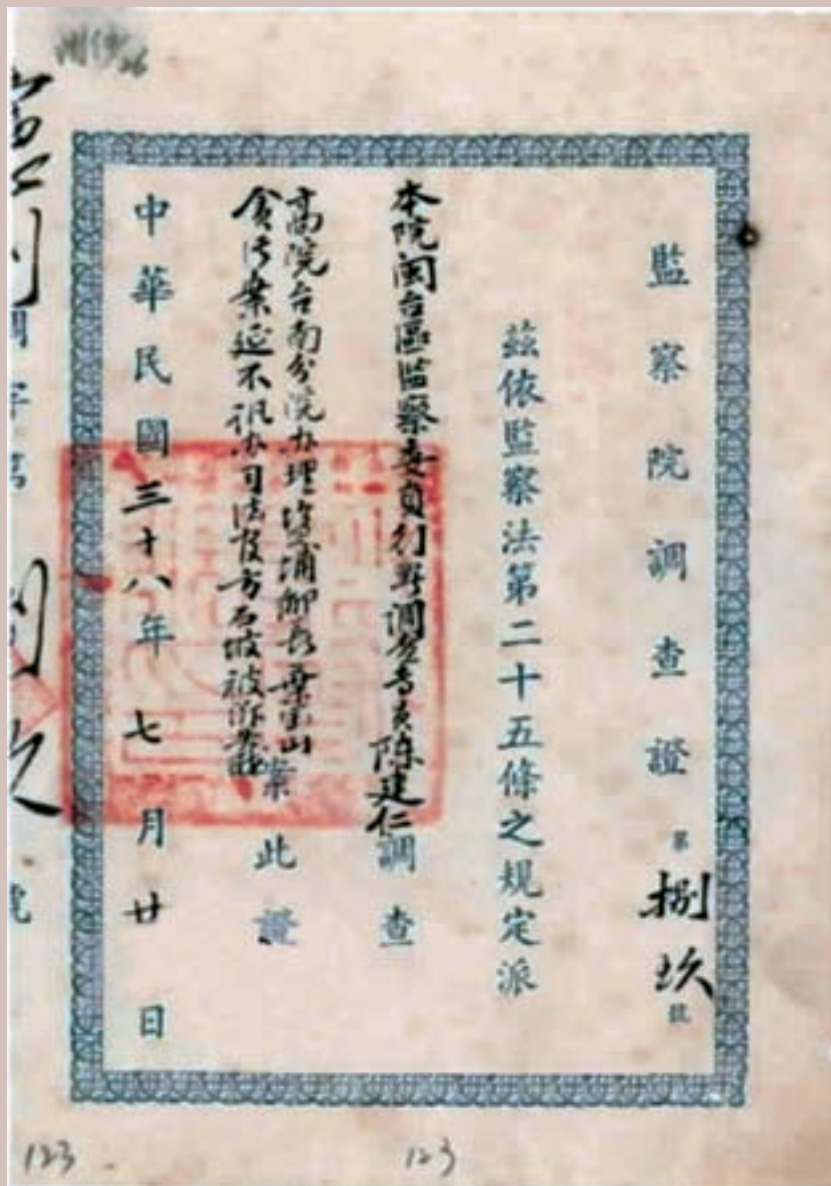 監察院調查證 第捌玖號
茲依監察法第二十五條之規定派
本院閩台區監察委員行署調查專員陳建仁調查
高院台南分院办理塩埔鄉長葉寶山
貪污案延不訊办司法及方石坡被詐案
案此證
中華民國三十八年七月廿日
123
123